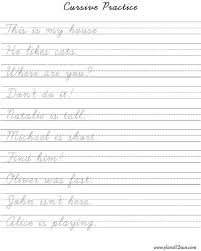 Cursive Practice
This is my house.
He likes cats.
Where are you?
Don't do it!
Natalie is tall.
Michael is short.
Find him!
Oliver was fast.
John isn't here.
Alice is playing.